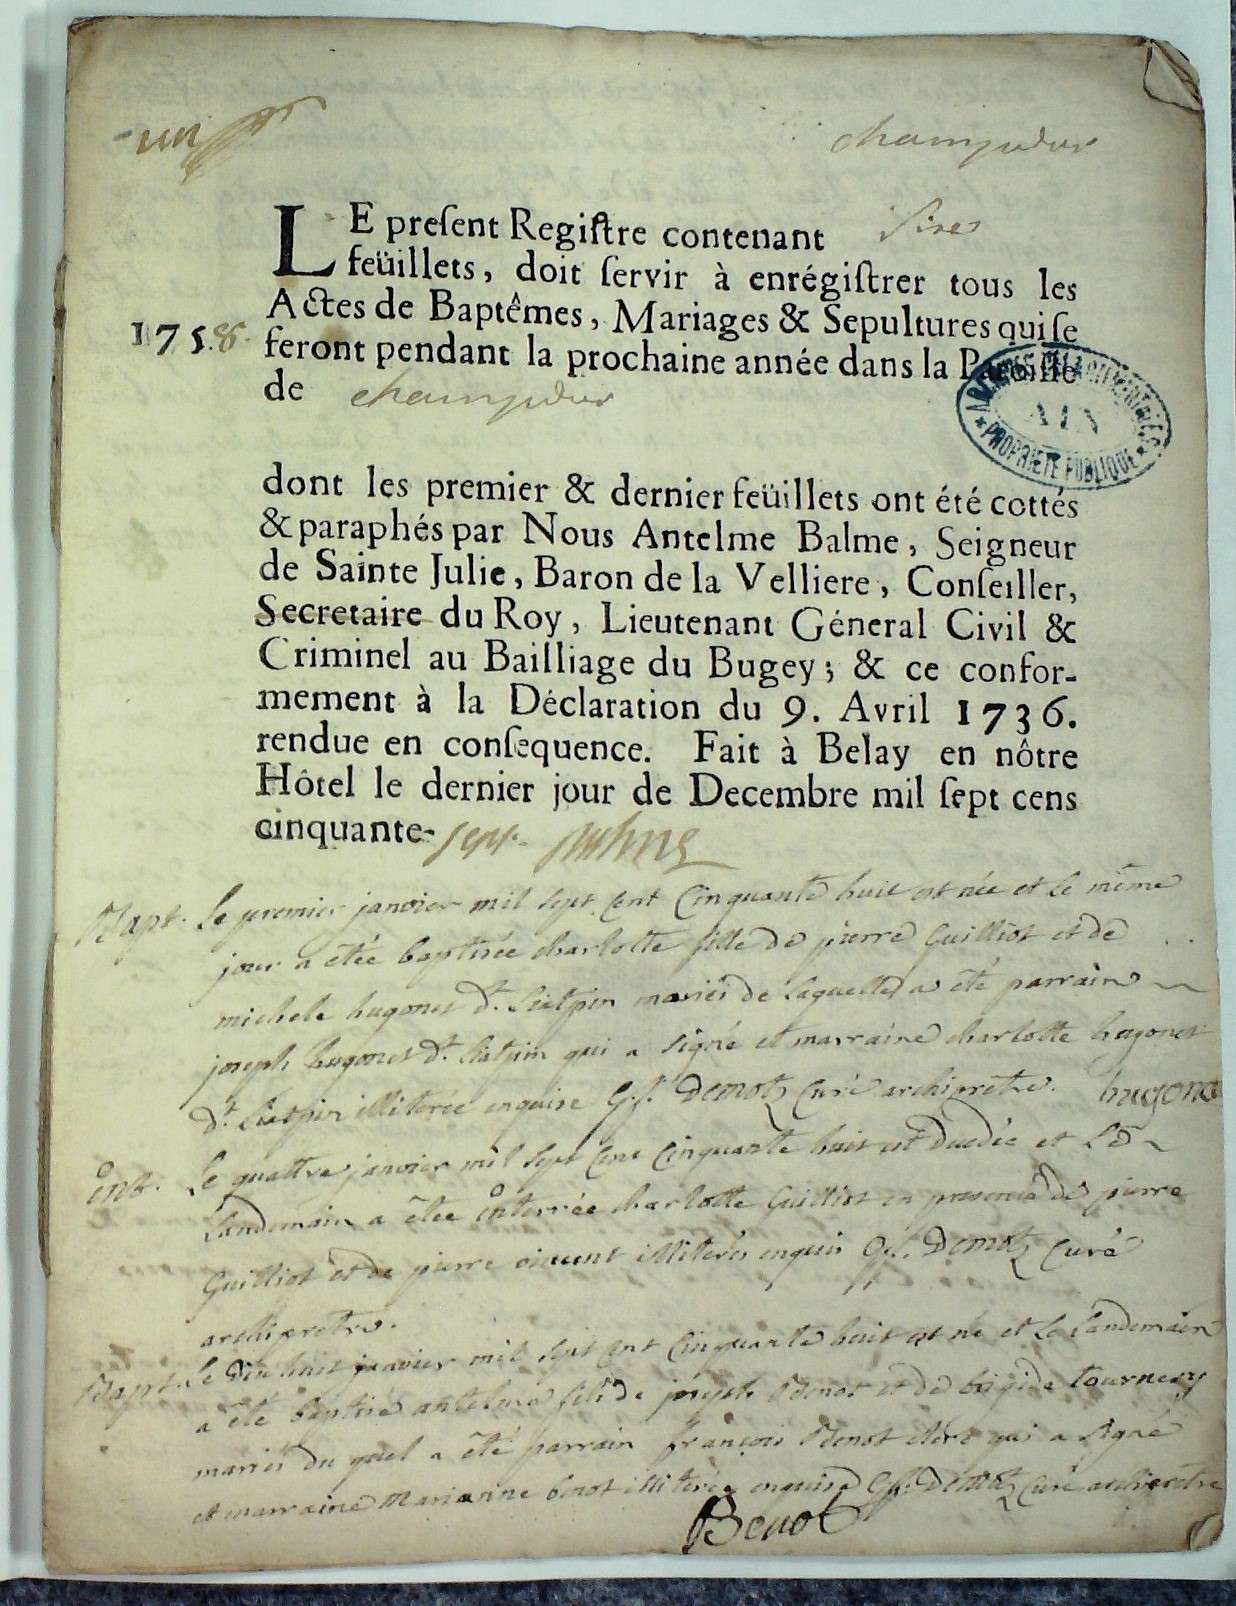 un
champdor
LE preſent Regiſtre contenant
feüillets, doit ſervir à enrégiſtrer tous les
Actes de Baptêmes, Mariages & Sepultures qui ſe
1758.
feront pendant la prochaine année dans la Paroiſſe
de champdor
ARCHIVES DÉPARTEMENTALES
AIN
PROPRIÉTÉ PUBLIQUE
dont les premier & dernier feüillets ont été cottés
& paraphés par Nous Antelme Balme, Seigneur
de Sainte Julie, Baron de la Velliere, Conſeiller,
Secretaire du Roy, Lieutenant Géneral Civil &
Criminel au Bailliage du Bugey; & ce confor-
mement à la Déclaration du 9. Avril 1736.
rendue en conſequence. Fait à Belay en nôtre
Hôtel le dernier jour de Decembre mil ſept cens
cinquante- sept
Bapt. Le premier janvier mil sept cent Cinquante huit est née et le même
jour a étée baptisée charlotte fille de pierre Guilliot et de
michele hugonet dt. mariés de laquelle a été parrain
joseph hugonet dt. qui a signé et marraine charlotte hugonet
dt. illiterée enquise Demotz Curé archipretre. hugonet
Le quattre janvier mil sept Cent Cinquante huit est decedée et Le
Landemain a étée interrée charlotte Guilliot en presence de pierre
Guilliot et de pierre vincent illiterés enquis Demotz Curé
archipretre.
Bapt. Le dix huit janvier mil sept Cent Cinquante huit est né et Le Landemain
a été baptisé antelme fils de joseph Benot et de brigide tournery
mariés du quel a été parrain françois Benot clerc qui a signé
et marraine Marianne benot illiterée enquise Demotz Curé archipretre
Benot